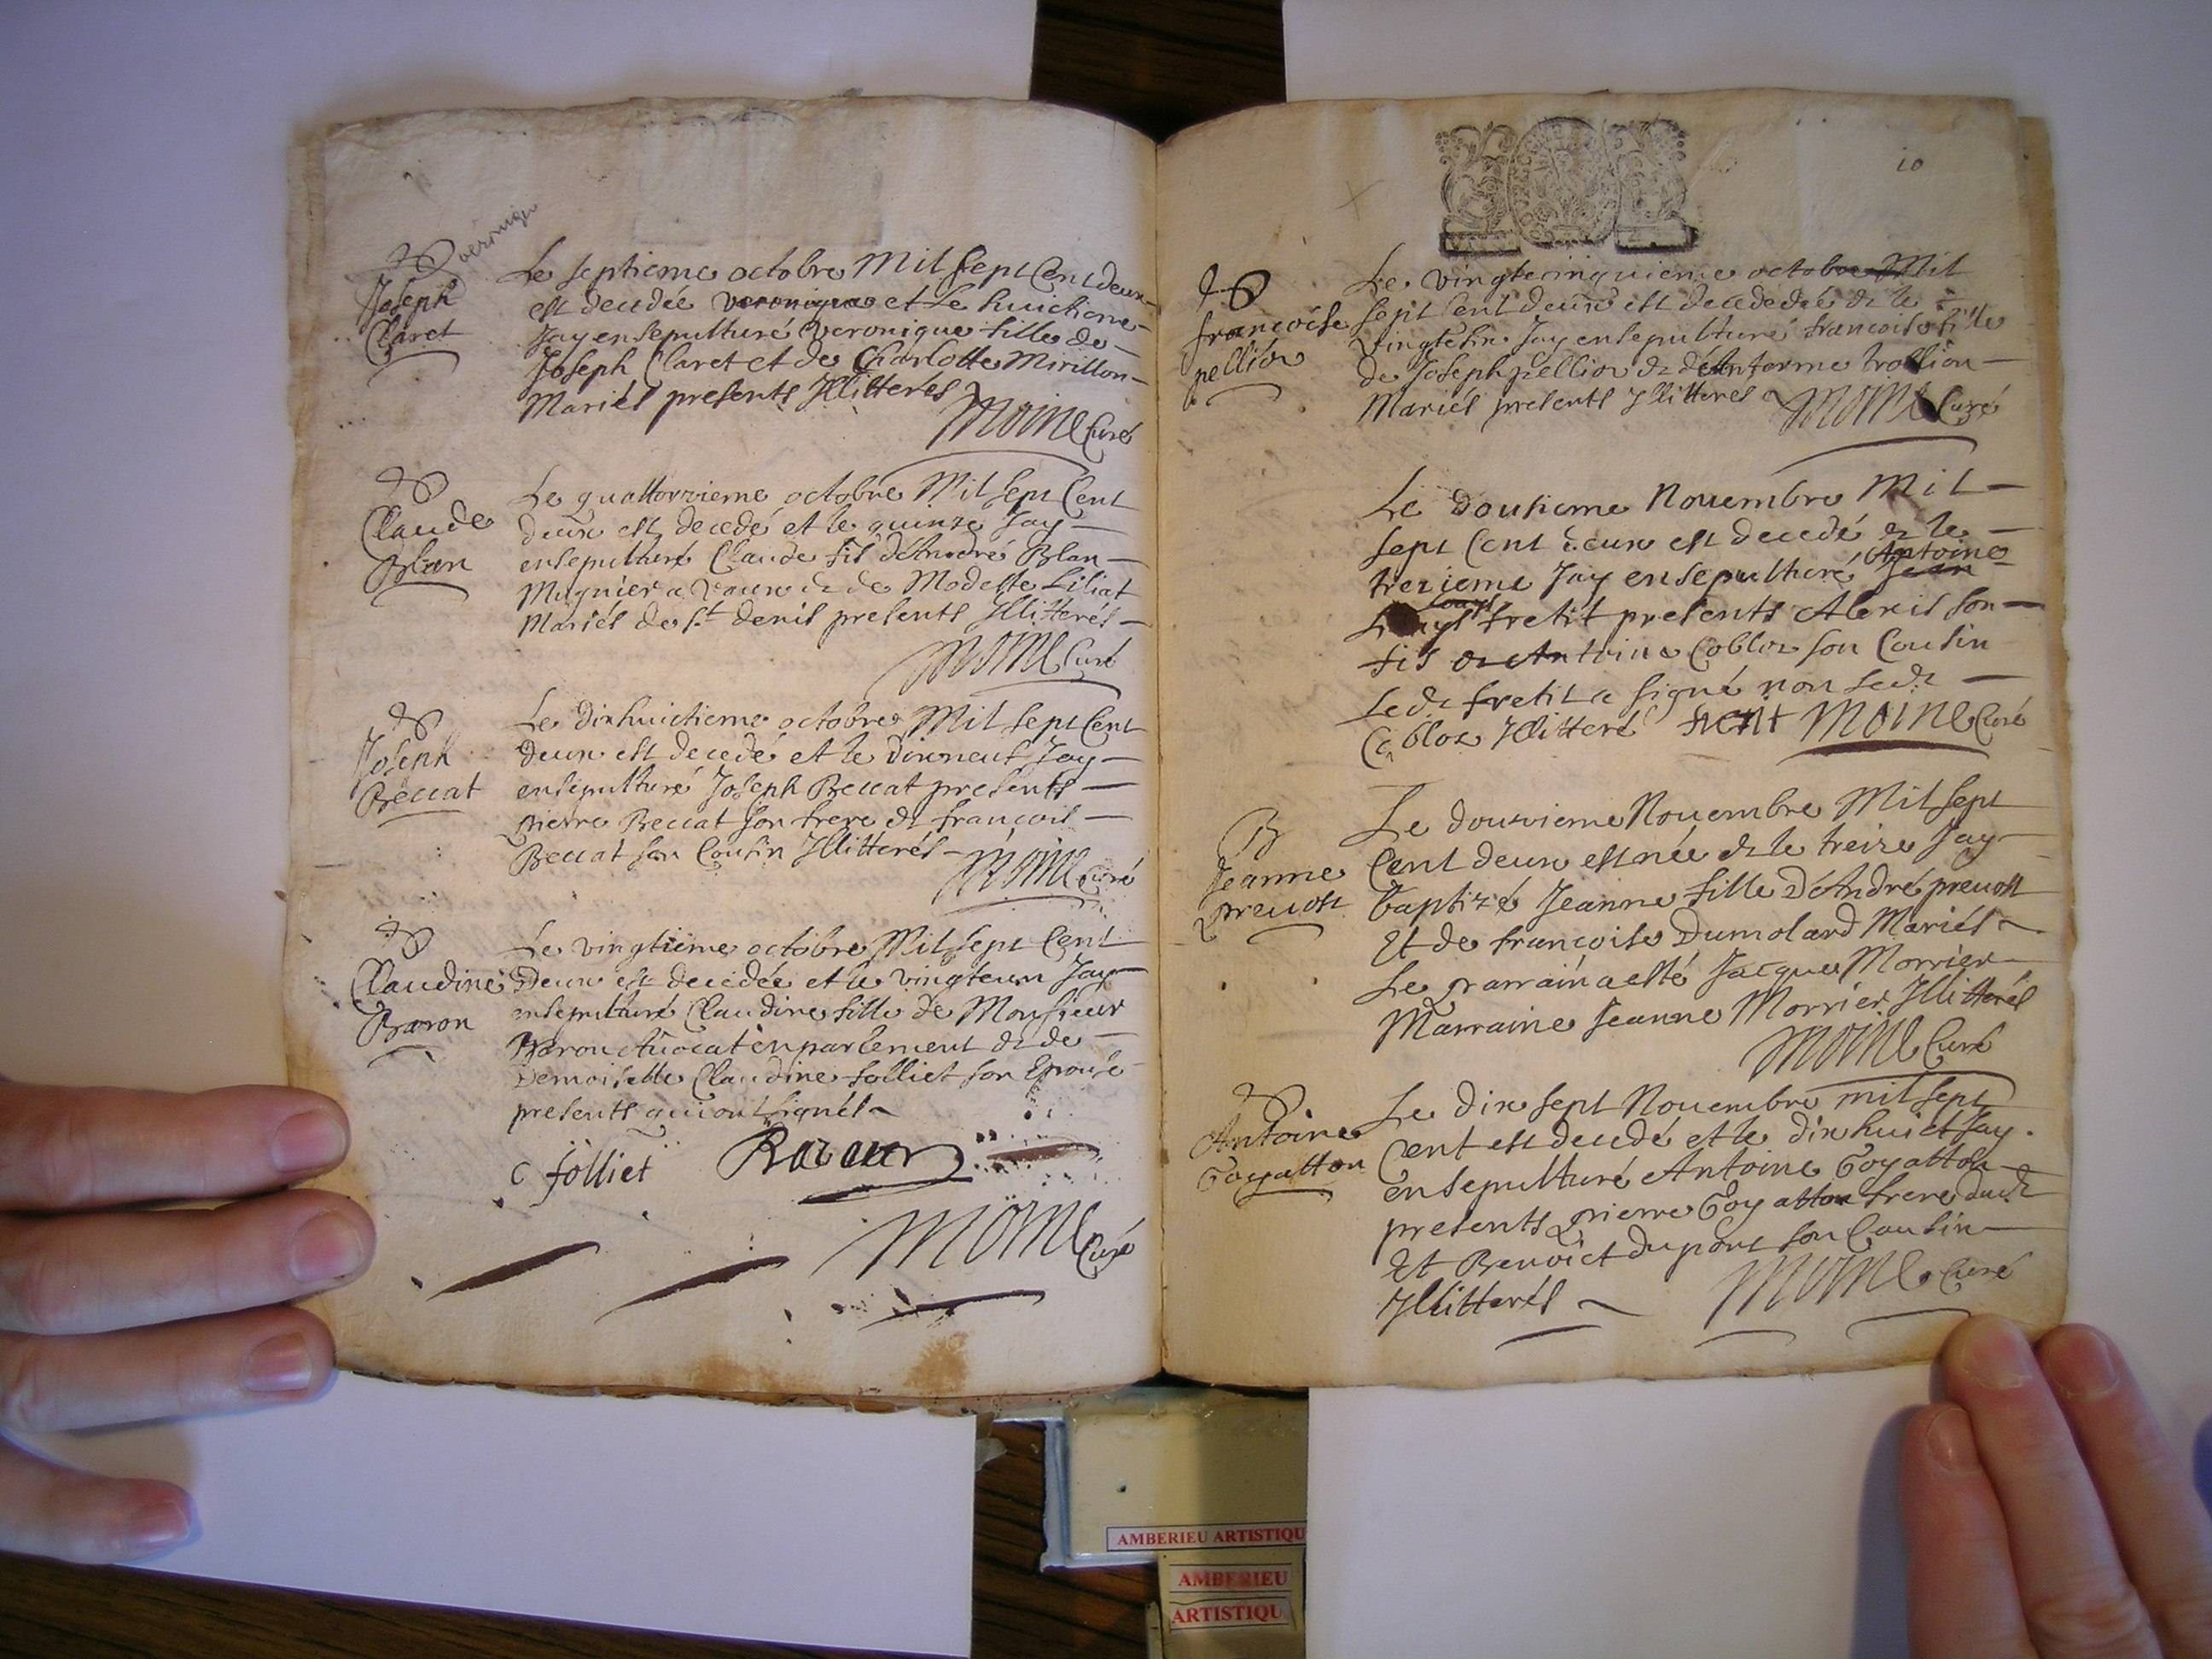 veronique
Joseph
Claret
Le septieme octobre Mil sept Cent deux
est decedée veronique et le huictieme
Jay ensepulturé veronique fille de
Joseph Claret et de Charlotte Mirillon
Mariés presents Illitterés
Moine Curé
Claude
Blan
Le quattorzieme octobre Mil sept Cent
deux est decedé et le quinze Jay
ensepulturé Claude fils d'André Blan
Mugnier a Vaux & de Modeste Liliat
Mariés de st denis presents Illitterés
Moine Curé
Joseph
Beccat
Le dixhuictieme octobre Mil sept Cent
deux est decedé et le dixneuf Jay
ensepulturé Joseph Beccat presents
pierre Beccat son frere & francois
Beccat son Cousin Illitterés
Moine Curé
Claudine
Baron
Le vingtieme octobre Mil sept Cent
Deux est decedée et le vingteun Jay
ensepulturé Claudine fille de Monsieur
Baron Avocat en parlement & de
Demoiselle Claudine folliet son Epouse
presents qui ont signés
C folliet Baron
Moine Curé
10
francoise
pellion
Le vingtcinquieme octobre Mil
sept Cent deux est decededée & le
vingtesix Jay ensepulturé francoise fille
de Joseph pellion & d'Antorme trollion
Mariés presents Illitterés
Moine Curé
Le dousieme Nouembre Mil
sept Cent deux est decedé & le
Antoine
trezieme Jay ensepulturé Jean
Louys
fretit presents Alexis son
fils & Antoine Cobloz son Cousin
Led fretit a signé non led
Cobloz Illitteré Moine Curé
B
Jeanne
prevost
Le douzieme Nouembre Mil sept
Cent deux est née & le treize Jay
baptizé Jeanne fille D'André prevost
Et de francoise Dumolard Mariés
Le parrain a esté Jacque Morrier
Marraine Jeanne Morrier Illitterés
Moine Curé
Antoine
Goyatton
Le dix sept Nouembre mil sept
Cent est decedé et le dixhuict Jay
ensepulturé Antoine Goyatton
presents pierre Goyatton frere dud
Et Benoict dupont son Cousin
Illitterés Moine Curé
AMBERIEU ARTISTIQU
AMBERIEU
ARTISTIQU